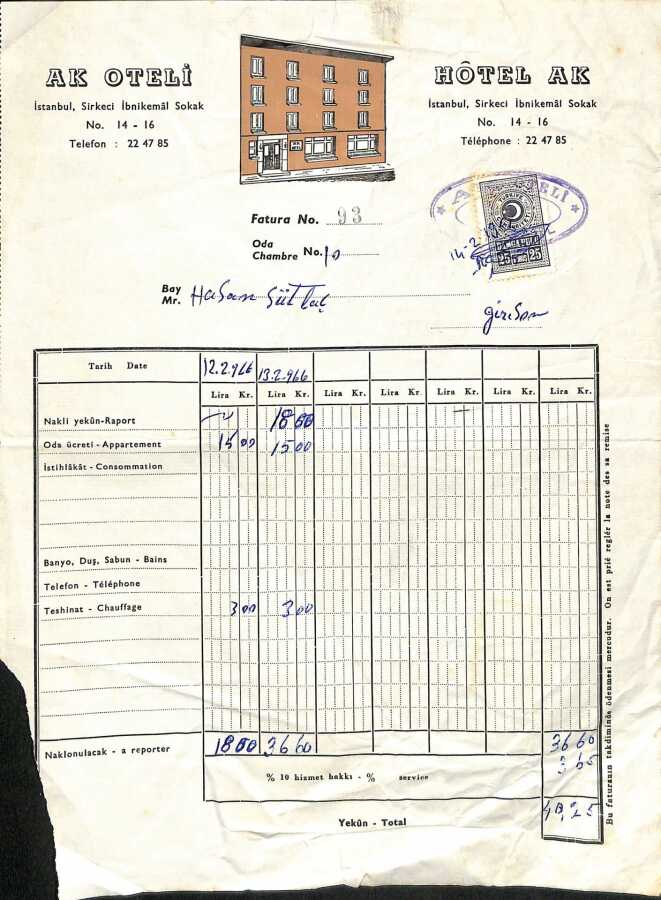 AK OTELİ
İstanbul, Sirkeci İbnikemâl Sokak
No. 14 - 16
Telefon : 22 47 85
HÔTEL AK
İstanbul, Sirkeci İbnikemâl Sokak
No. 14 - 16
Téléphone : 22 47 85
Fatura No. 93
Oda
Chambre No. 10
Bay
Mr. Hasan
Tarih Date 12.2.966 13.2.966
Lira Kr. Lira Kr. Lira Kr. Lira Kr. Lira Kr. Lira Kr. Lira Kr.
Nakli yekûn-Raport 18 00
Oda ücreti - Appartement 15 00 15 00
İstihlâkât - Consommation
Banyo, Duş, Sabun - Bains
Telefon - Téléphone
Teshinat - Chauffage 3 00 3 00
Naklonulacak - a reporter 18 00 36 60 36 60
3 65
% 10 hizmet hakkı - % service
Yekûn - Total 40,25
Bu faturanın takdiminde ödenmesi mercudur. On est prié reglér la note des sa remise